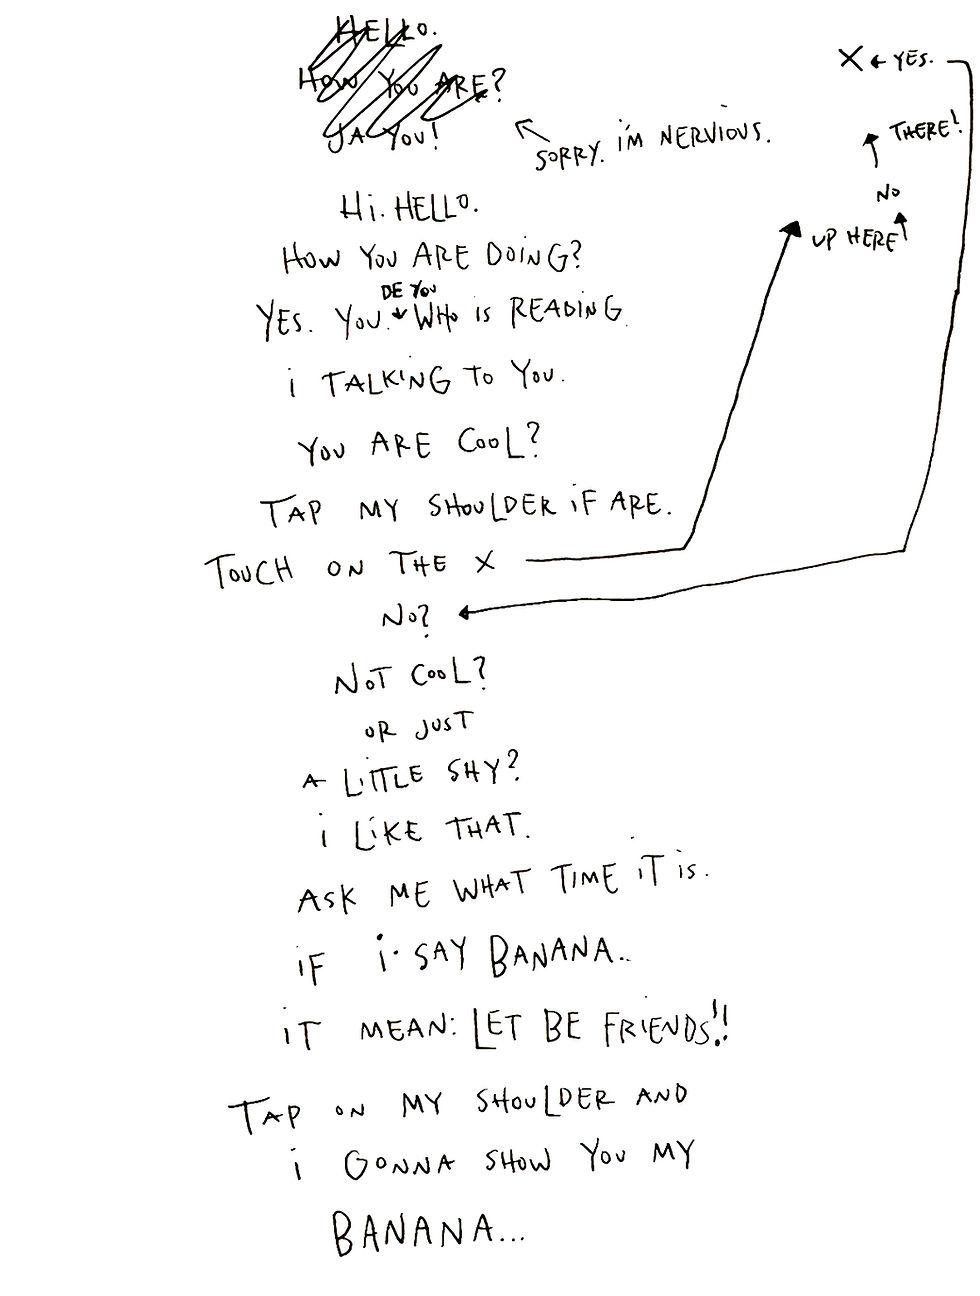 HELLO.
HOW YOU ARE?
JA YOU!
SORRY. I'M NERVIOUS.
Hi. HELLO.
HOW YOU ARE DOING?
DE YOU
YES. YOU. WHO IS READING.
I TALKING TO YOU.
YOU ARE COOL?
TAP MY SHOULDER IF ARE.
TOUCH ON THE X
UP HERE
NO
THERE!
X ← YES.
NO?
NOT COOL?
OR JUST
A LITTLE SHY?
I LIKE THAT.
ASK ME WHAT TIME IT IS.
IF I SAY BANANA..
IT MEAN: LET BE FRIENDS!!
TAP ON MY SHOULDER AND
I GONNA SHOW YOU MY
BANANA...